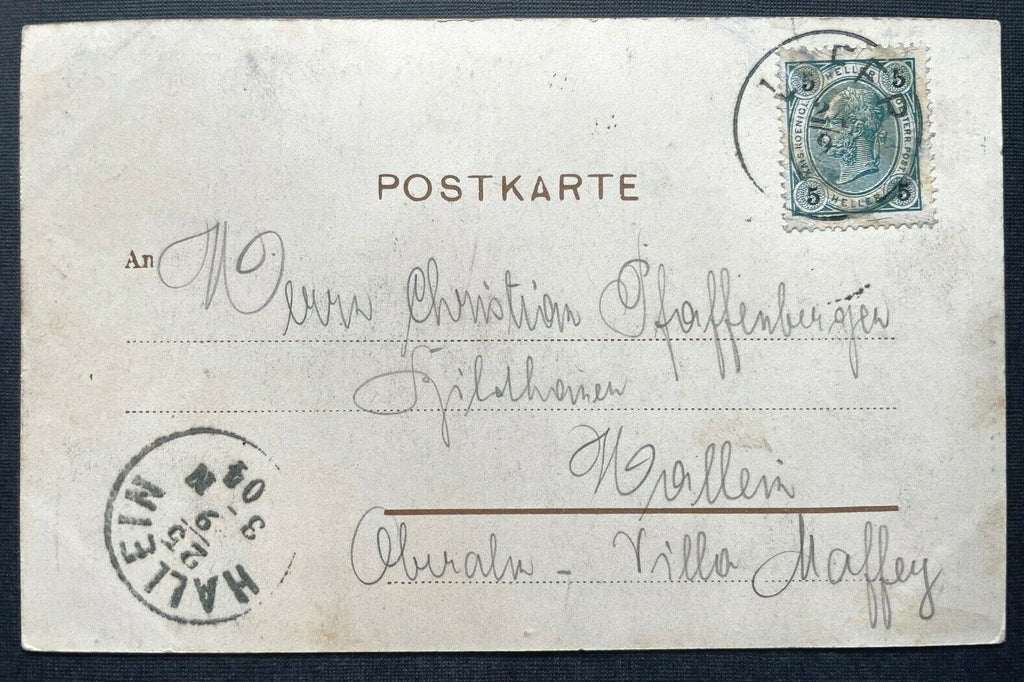 POSTKARTE
5 HELLER 5
KAIS. KOENIGL. OESTERR. POST
5 HELLER 5
An Herrn Christian Pfaffenberger
Bildhauer
Hallein
Oberalm - Villa Maffey
HALLEIN
25/9
3
03
N